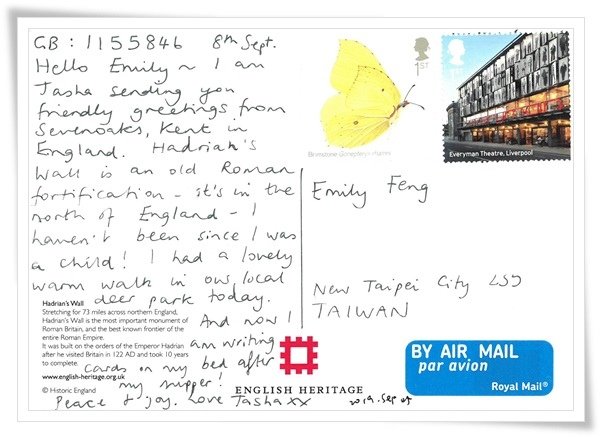 GB : 1155846 8th Sept.
Hello Emily ~ I am
Tasha sending you
friendly greetings from
Sevenoaks, Kent in
England. Hadrian's
Wall is an old Roman
fortification - it's in the
north of England - I
haven't been since I was
a child! I had a lovely
warm walk in our local
deer park today.
And now I
am writing
cards on my bed after
my supper!
Peace & joy. Love Tasha xx
1ST
Brimstone Gonepteryx rhamni
Everyman Theatre, Liverpool
Emily Feng
New Taipei City
TAIWAN
Hadrian's Wall
Stretching for 73 miles across northern England,
Hadrian's Wall is the most important monument of
Roman Britain, and the best known frontier of the
entire Roman Empire.
It was built on the orders of the Emperor Hadrian
after he visited Britain in 122 AD and took 10 years
to complete.
www.english-heritage.org.uk
© Historic England
ENGLISH HERITAGE
BY AIR MAIL
par avion
Royal Mail®
2019. Sep